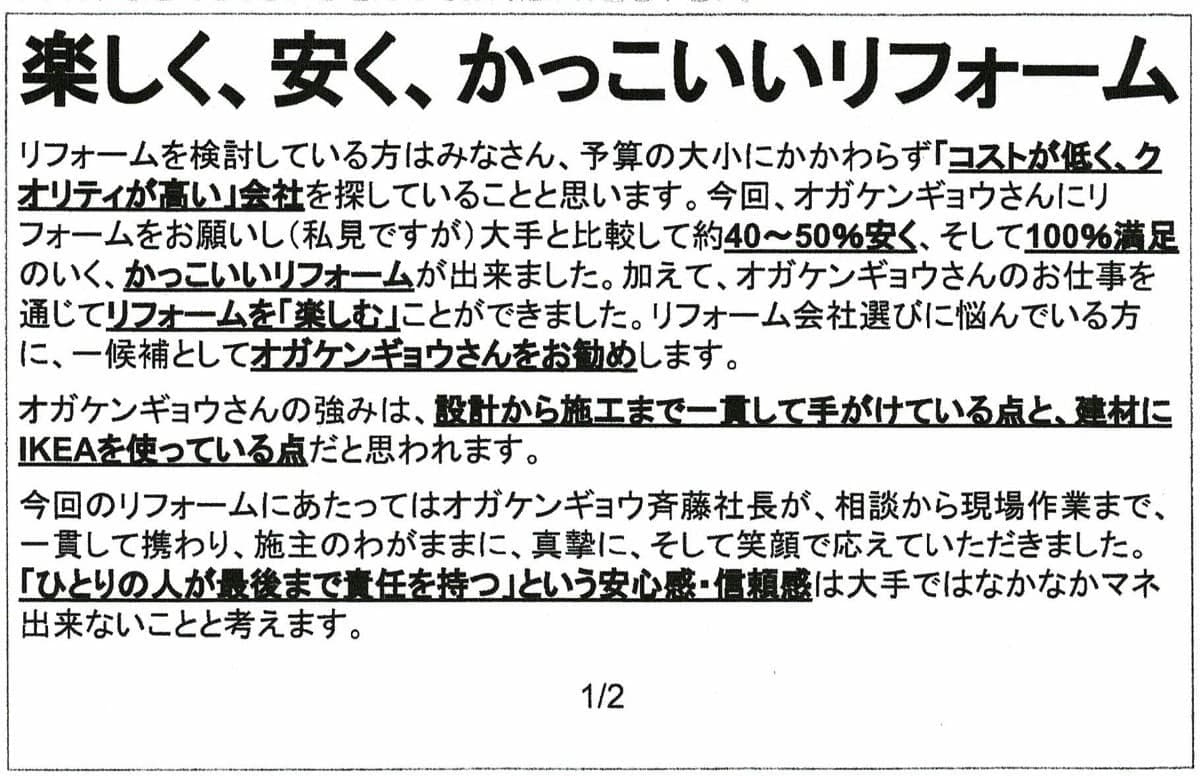 楽しく、安く、かっこいいリフォーム
リフォームを検討している方はみなさん、予算の大小にかかわらず「コストが低く、ク
オリティが高い」会社を探していることと思います。今回、オガケンギョウさんにリ
フォームをお願いし（私見ですが）大手と比較して約40～50%安く、そして100%満足
のいく、かっこいいリフォームが出来ました。加えて、オガケンギョウさんのお仕事を
通じてリフォームを「楽しむ」ことができました。リフォーム会社選びに悩んでいる方
に、一候補としてオガケンギョウさんをお勧めします。
オガケンギョウさんの強みは、設計から施工まで一貫して手がけている点と、建材に
IKEAを使っている点だと思われます。
今回のリフォームにあたってはオガケンギョウ斉藤社長が、相談から現場作業まで、
一貫して携わり、施主のわがままに、真摯に、そして笑顔で応えていただきました。
「ひとりの人が最後まで責任を持つ」という安心感・信頼感は大手ではなかなかマネ
出来ないことと考えます。
1/2